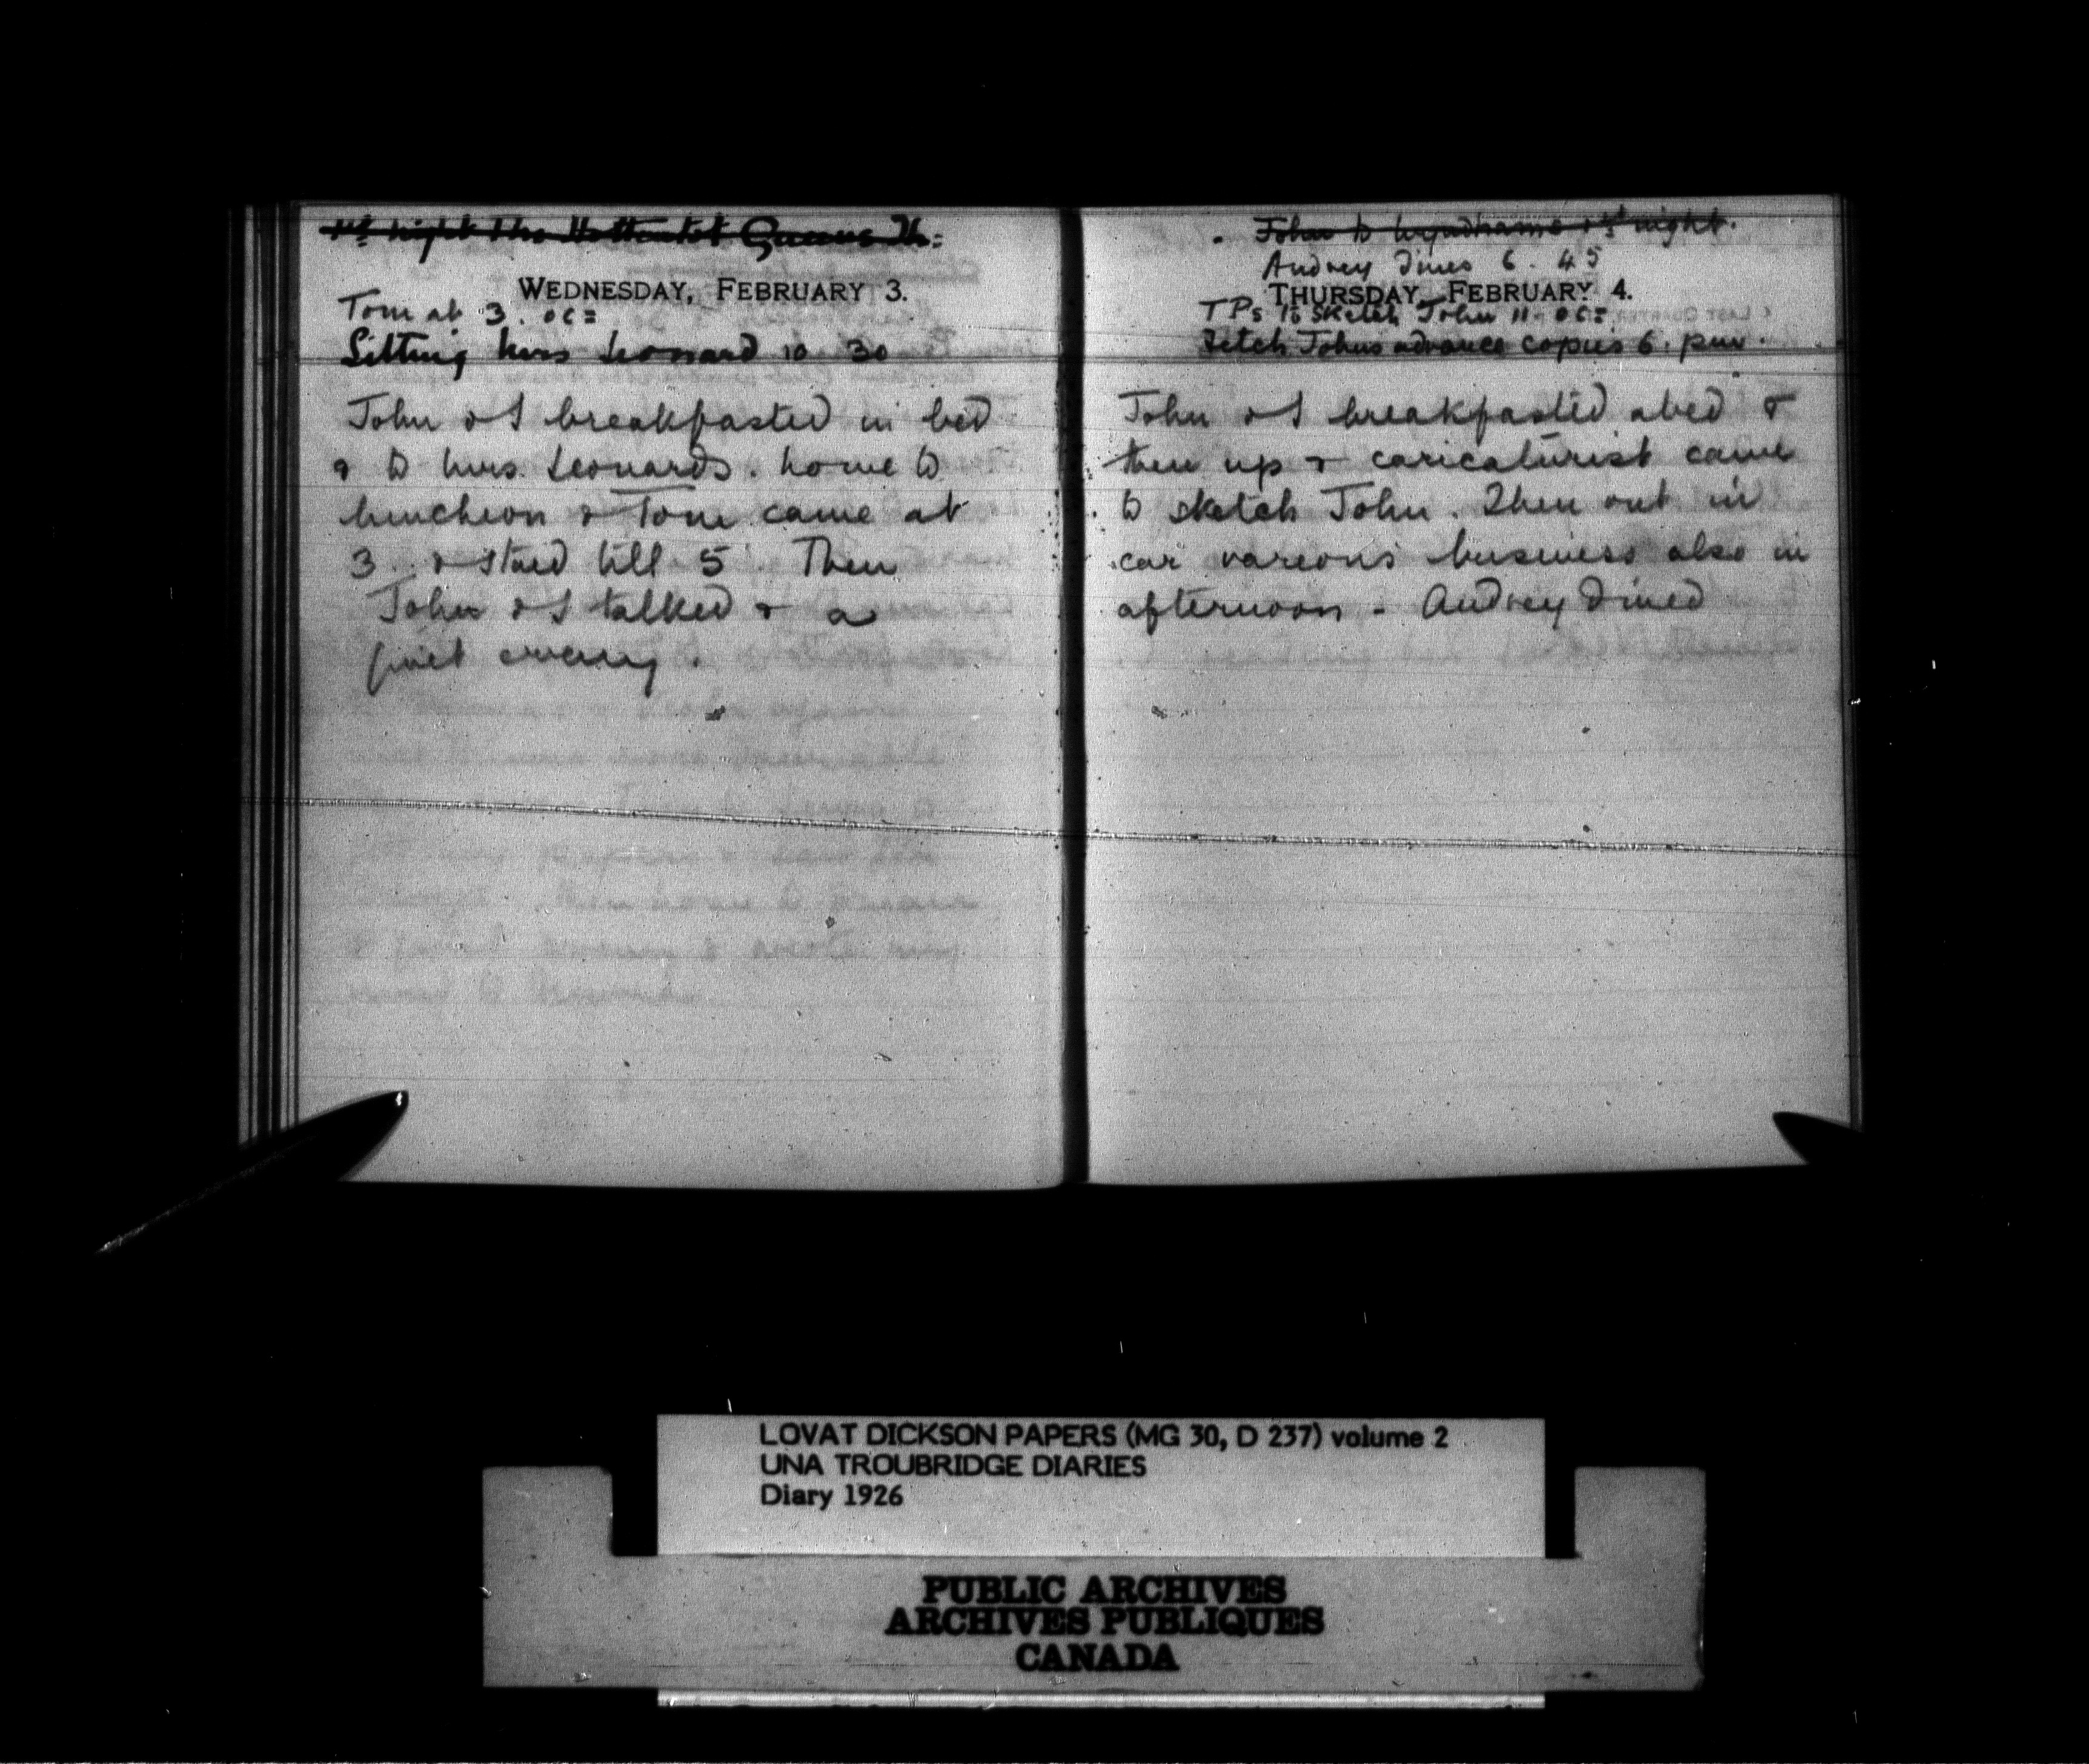 1st night The Hottentot Queens Th:
WEDNESDAY, FEBRUARY 3.
Tom at 3. oc=
Sitting Mrs Leonard 10 30
John & I breakfasted in bed
& to Mrs. Leonards. home to
luncheon & Tom came at
3.. & staid till 5. Then
John & I talked & a
quiet evening.
John to Wyndhams 1st night.
Audrey dines 6. 45
THURSDAY, FEBRUARY 4.
TPs to sketch John 11 - oc=
Fetch Johns advance copies 6. pm.
John & I breakfasted abed &
then up & caricaturist came
to sketch John. Then out in
car vareous business also in
afternoon - Audrey dined
LOVAT DICKSON PAPERS (MG 30, D 237) volume 2
UNA TROUBRIDGE DIARIES
Diary 1926
PUBLIC ARCHIVES
ARCHIVES PUBLIQUES
CANADA